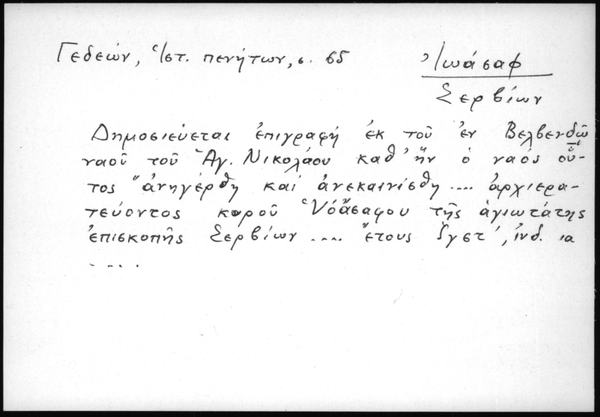 Γεδεών, Ἱστ. πενήτων, σ. 65
Ἰωάσαφ
Σερβίων
Δημοσιεύεται ἐπιγραφή ἐκ τοῦ ἐν Βελβενδῷ
ναοῦ τοῦ Ἁγ. Νικολάου καθ' ἥν ὁ ναος οὗ-
τος "ἀνηγέρθη καί ἀνεκαινίσθη .... ἀρχιερα-
τεύοντος κυροῦ Ἰωάσαφου τῆς ἁγιωτάτης
ἐπισκοπῆς Σερβίων .... ἔτους ͵ζ , ἰνδ. ια
.....